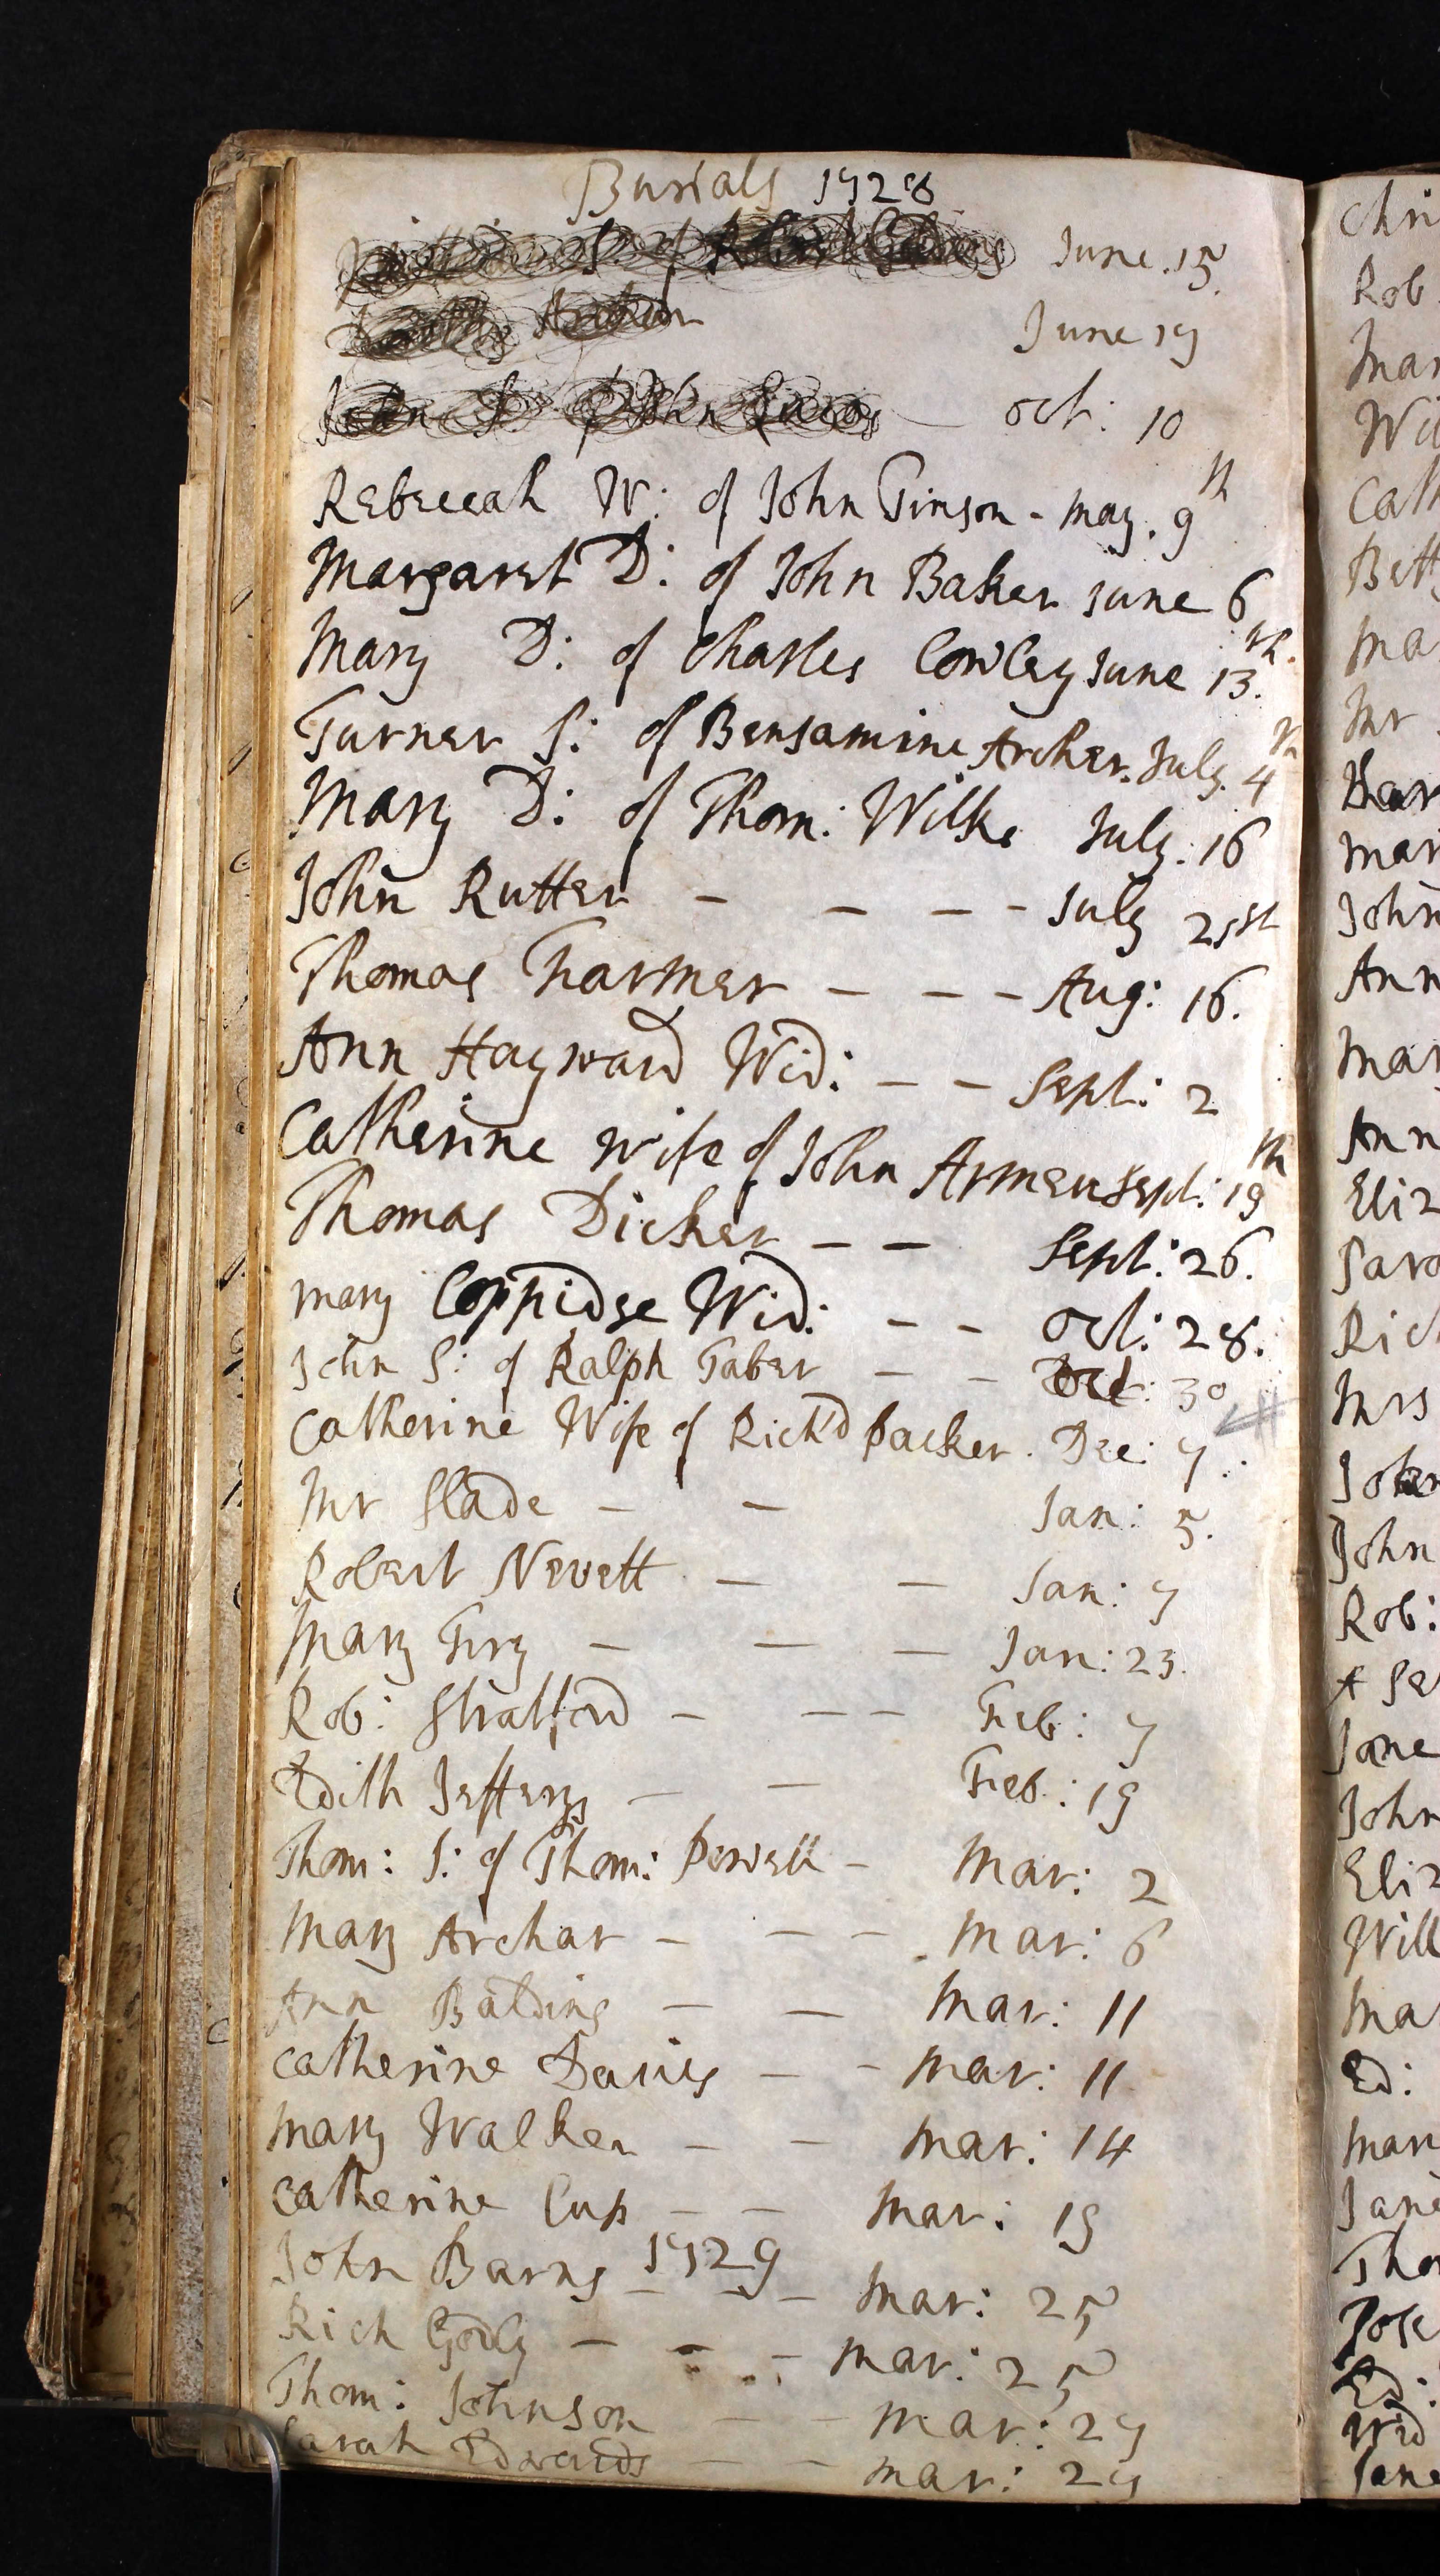 Burials 1728
S: of Robert June. 15
Archer June 17
John S: of John oct: 10
Rebeccah W: of John Timson - may. 9th
Margaret D: of John Baker June 6
Mary D: of Charles Cowley June 13th.
Turner S: of Bensamine Archer. July. 4th
Mary D: of Thom: Wilks July. 16
John Rutter - - - - July 21st
Thomas Farmer - - - Aug: 16.
Ann Hayward Wid: - - Sept: 2
Catherine wife of John Armen Sept: 19th
Thomas Dicker - - Sept: 26.
mary Coppidge Wid: - - Oct: 28.
John S: of Ralph Taber - - Oct: 30
Catherine Wife of Richd packer. Dec: 7.
Mr Slade - - Jan: 5.
Robert Nevett - - Jan: 7
Mary Firy - - - Jan: 23.
Rob: Stratford - - - Feb: 7
Edith Jefferys - - Feb: 19
Thom: S: of Thom: Powell - Mar: 2
Mary Archar - - - Mar: 6
Ann Balding - - Mar: 11
Catherine Davis - - Mar: 11
Mary Walker - - Mar: 14
Catherine Cup - - Mar: 19
1729
John Barns - - - Mar: 25
Rich Godly - - - Mar: 25
Thom: Johnson - - Mar: 27
Sarah Edwards - - Mar: 29
Rob
Mar
Wil
Cath
Bett
Ma
Mr
Mar
John
Ann
Mar
Ann
Eliz
Sara
Rich
Mrs
John
John
Rob:
Jane
John
Eliz
Will
Ma
Ed:
Mary
Jane
Tho
Ed:
Wid
Jane